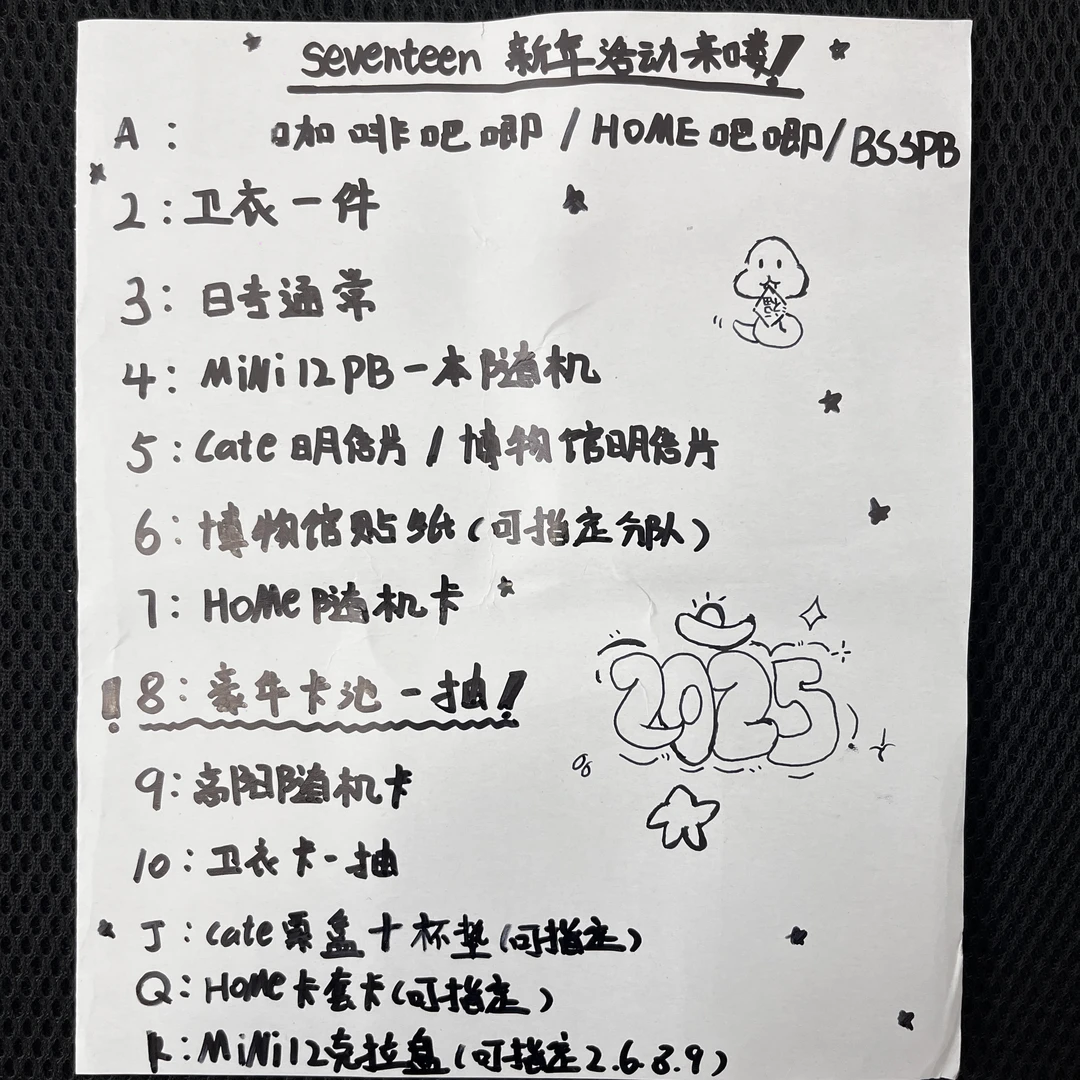 seventeen 新年活动来喽!
A: 咖啡吧唧/HOME吧唧/BSSPB
2:卫衣一件
3:日专通常
4:MiNi12PB一本随机
5:Cate明信片/博物馆明信片
6:博物馆贴纸(可指定分队)
7:HOMe随机卡
!8:豪华卡池一抽!
9:高阳随机卡
10:卫衣卡一抽
J:Cate票盒+杯垫(可指定)
Q:HOMe卡套卡(可指定)
K:MiNi12克拉盘(可指定2.6.8.9)
福
2025